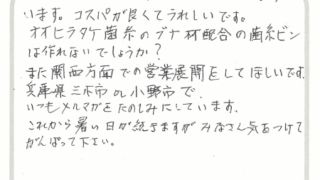 います。コスパが良くてうれしいです。
オオヒラタケ菌糸のブナ材配合の菌糸ビン
は作れないでしょうか?
また関西方面での営業展開をしてほしいです。
兵庫県三木市 or 小野市で、
いつもメルマガをたのしみにしています。
これから暑い日が続きますがみなさん気をつけて
がんばって下さい。